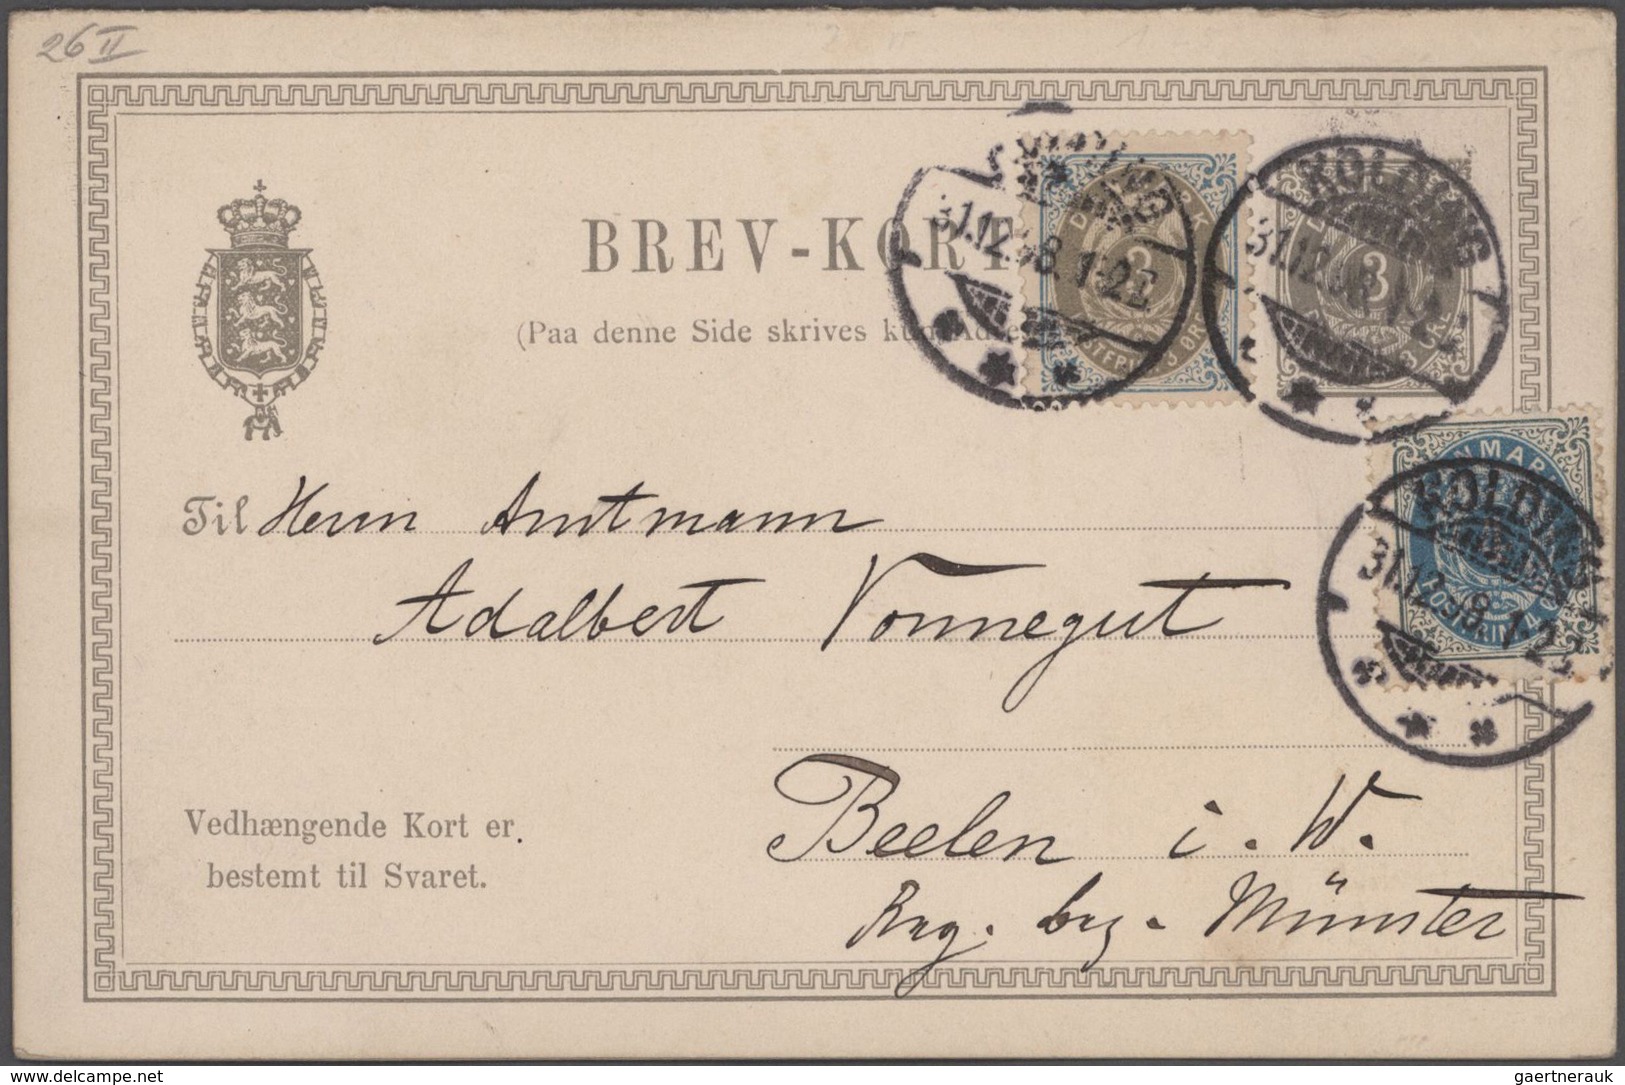 26 II
BREV-KORT
(Paa denne Side skrives kun
KOLDING
31.12.98. 1-2E
KOLDING
31.12.98. 1-2E
3
3
KOLDING
31.12.98. 1-2E
Til Herrn Amtmann
Adalbert Vonnegut
Beelen i. W.
Reg. bez. Münster
Vedhængende Kort er
bestemt til Svaret.
www.delcampe.net
gaertnerauk